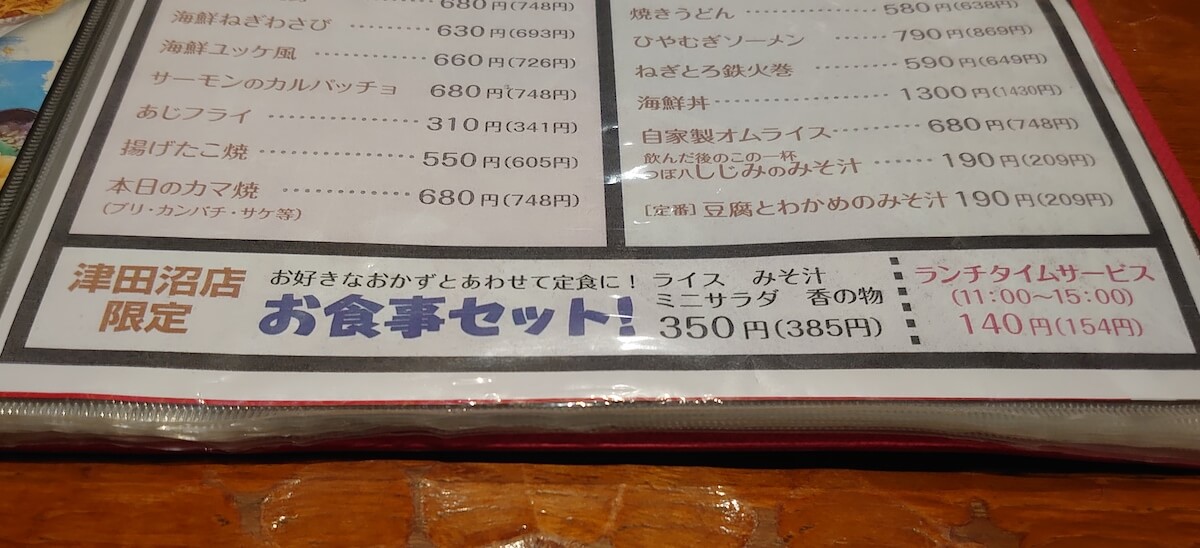 680円(748円)
海鮮ねぎわさび ‥‥‥‥‥ 630円(693円)
海鮮ユッケ風 ‥‥‥‥‥‥ 660円(726円)
サーモンのカルパッチョ 680円(748円)
あじフライ ‥‥‥‥‥‥‥‥ 310円(341円)
揚げたこ焼 ‥‥‥‥‥‥‥‥ 550円(605円)
本日のカマ焼 ‥‥‥‥‥‥‥ 680円(748円)
(ブリ・カンパチ・サケ等)
焼きうどん ‥‥‥‥‥‥‥ 580円(638円)
ひやむぎソーメン ‥‥‥ 790円(869円)
ねぎとろ鉄火巻 ‥‥‥‥ 590円(649円)
海鮮丼‥‥‥‥‥‥‥‥‥ 1300円(1430円)
自家製オムライス‥‥‥‥ 680円(748円)
飲んだ後のこの一杯
つぼ八しじみのみそ汁 ‥‥‥ 190円(209円)
[定番] 豆腐とわかめのみそ汁 190円(209円)
津田沼店
限定
お好きなおかずとあわせて定食に!
お食事セット!
ライス みそ汁
ミニサラダ 香の物
350円(385円)
ランチタイムサービス
(11:00~15:00)
140円(154円)